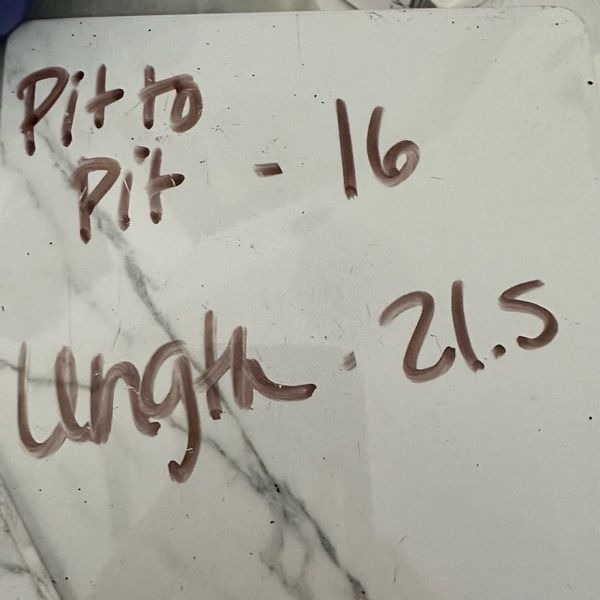 Pit to
Pit - 16
Length - 21.5